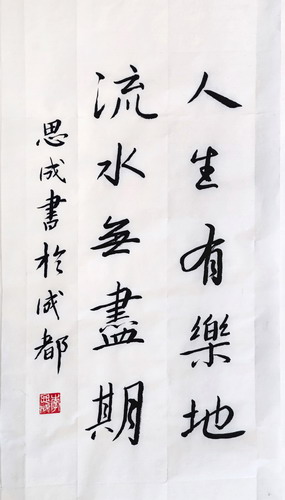 人生有樂地
流水無盡期
思成書於成都